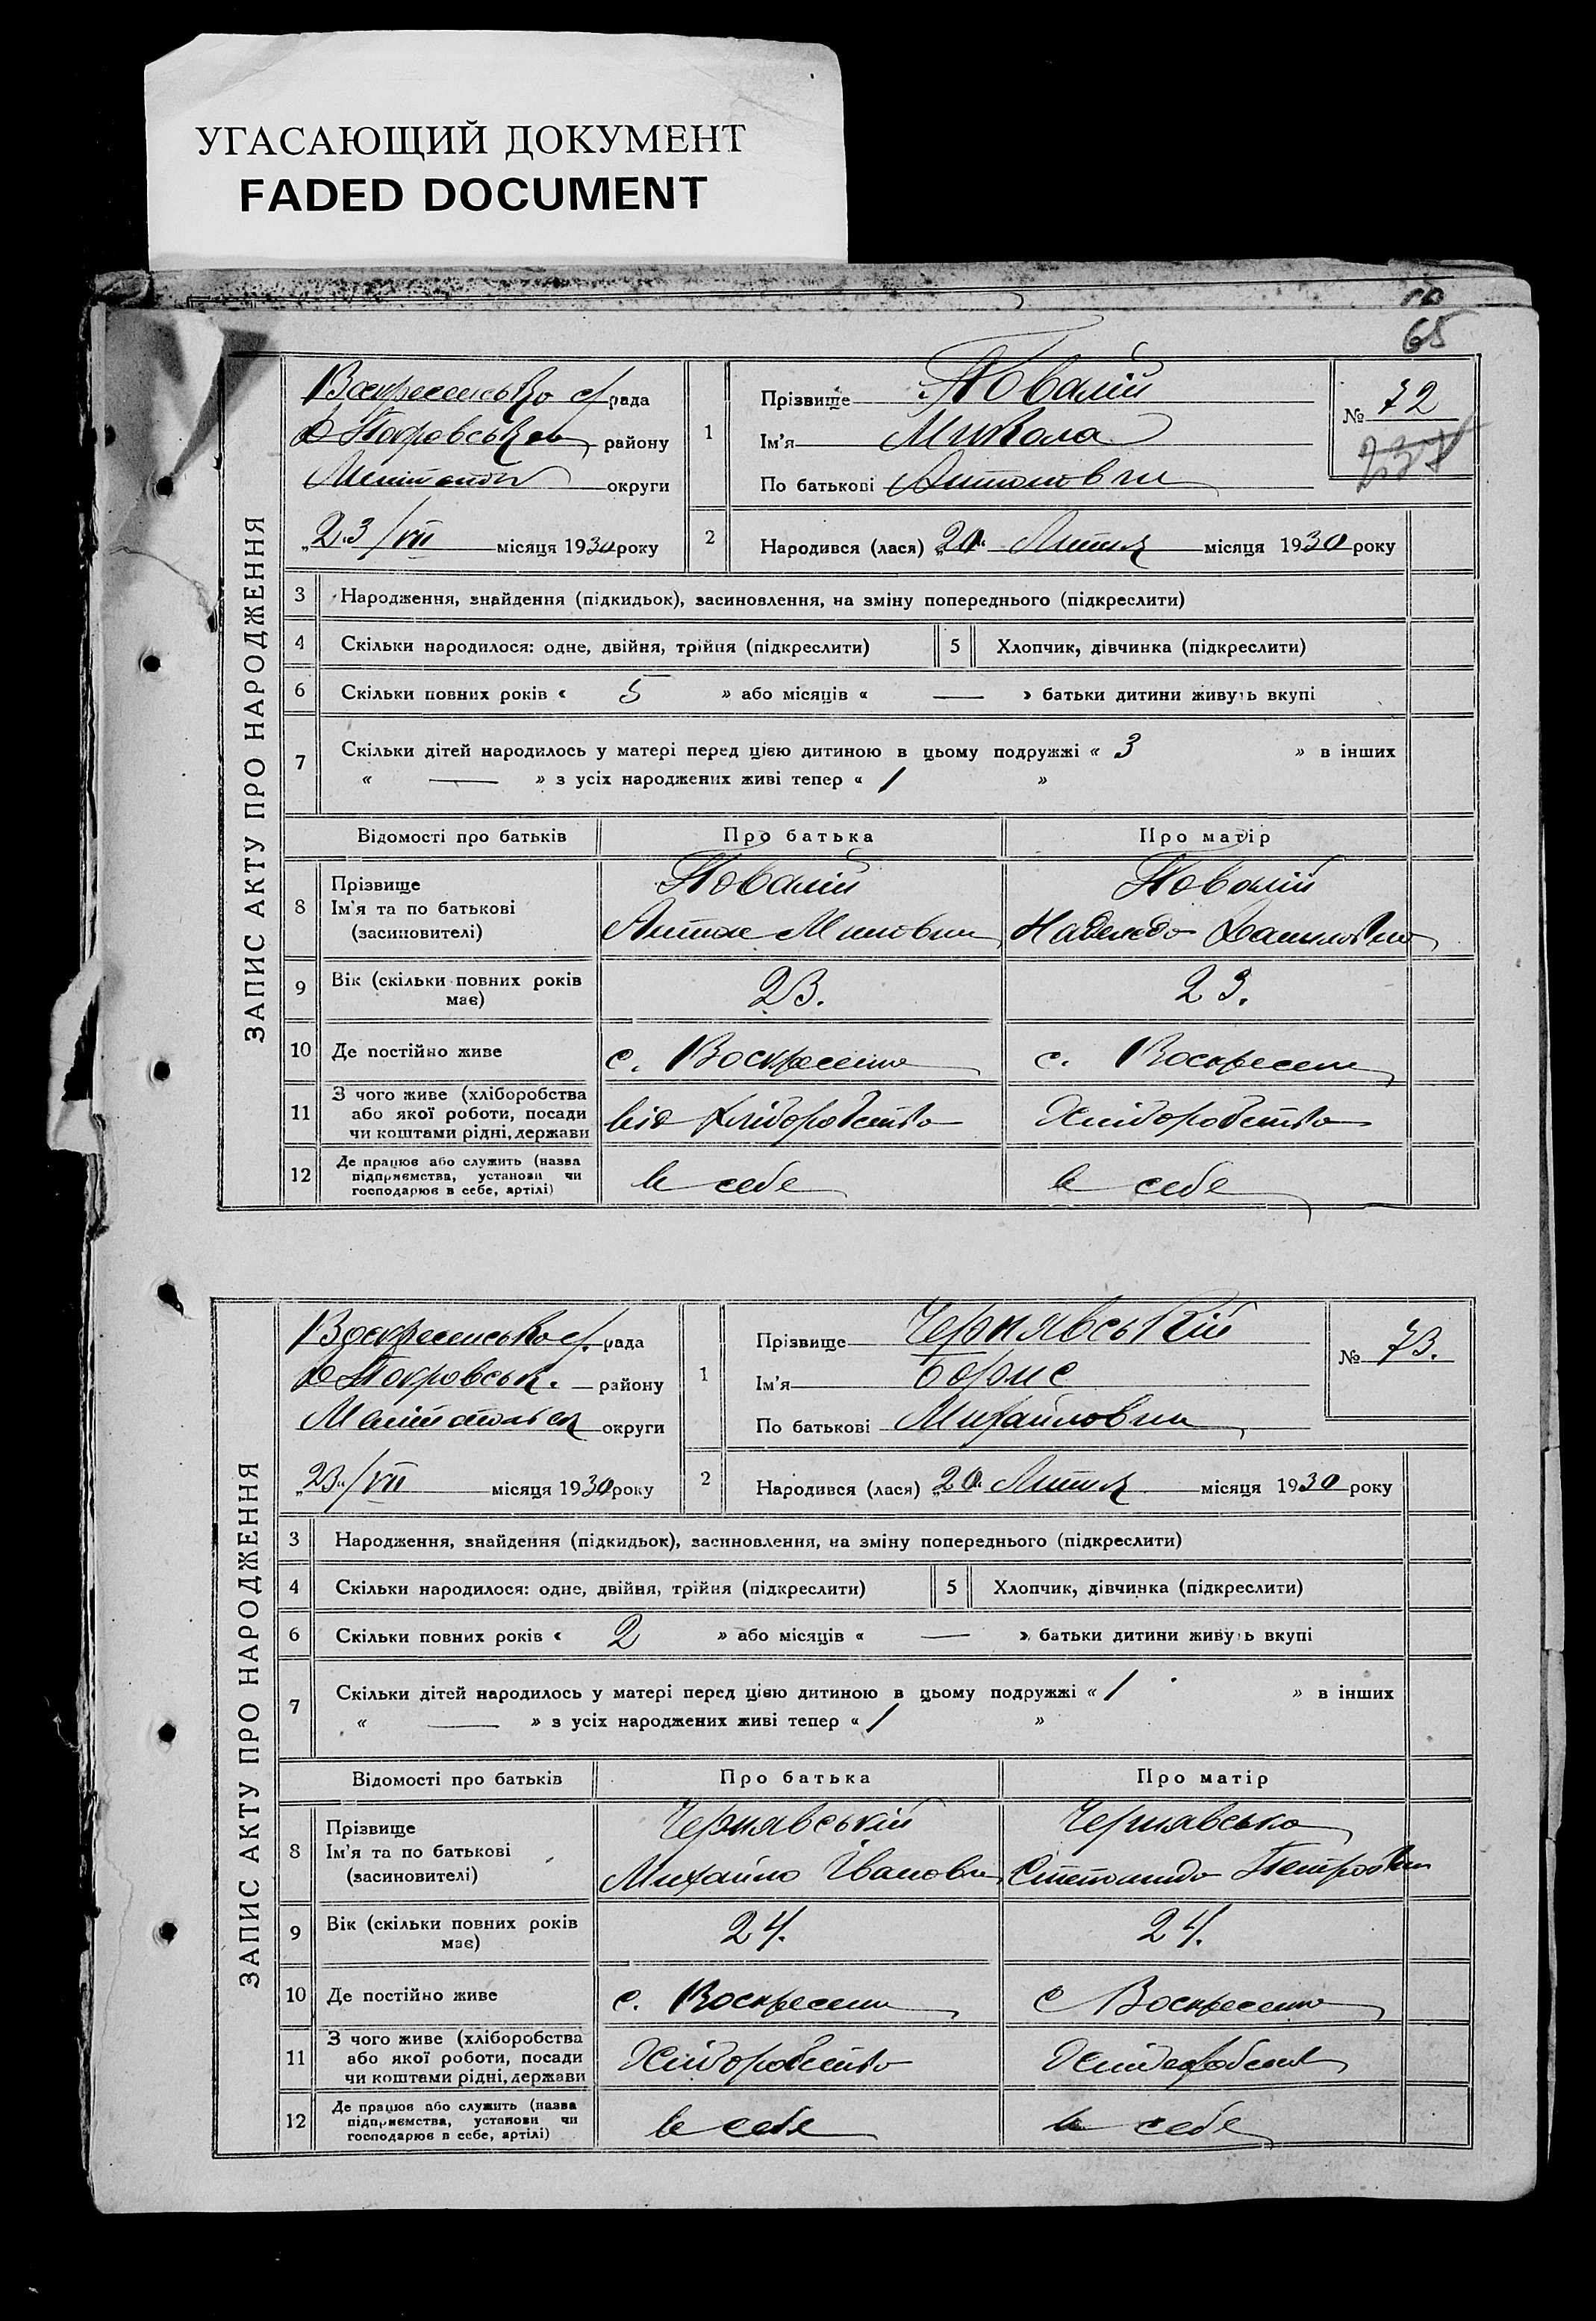 УГАСАЮЩИЙ ДОКУМЕНТ
FADED DOCUMENT
65
ЗАПИС АКТУ ПРО НАРОДЖЕННЯ
рада
району
округи
„23/VII місяця 1930 року
1
Прізвище Повалій
Ім'я Микола
По батькові Антонович
№ 72
237
2
Народився (лася) „20“ Липня місяця 1930 року
3 Народження, знайдення (підкидьок), засиновлення, на зміну попереднього (підкреслити)
4 Скільки народилося: одне, двійня, трійня (підкреслити) 5 Хлопчик, дівчинка (підкреслити)
6 Скільки повних років « 5 » або місяців « — » батьки дитини живуть вкупі
7 Скільки дітей народилось у матері перед цією дитиною в цьому подружжі « 3 » в інших
« — » з усіх народжених живі тепер « 1 »
Відомості про батьків Про батька Про матір
8 Прізвище Повалій Повалій
Ім'я та по батькові
(засиновителі) Антон
9 Вік (скільки повних років має) 23. 23.
10 Де постійно живе с. с.
11 З чого живе (хліборобства
або якої роботи, посади
чи коштами рідні, держави від хліборобства Хліборобства
12 Де працює або служить (назва
підприємства, установи чи
господарює в себе, артілі) в себе в себе
ЗАПИС АКТУ ПРО НАРОДЖЕННЯ
рада
району
округи
„23“/VII місяця 1930 року
1
Прізвище Чернявській
Ім'я Борис
По батькові Михайлович
№ 73.
2
Народився (лася) „20“ Липня місяця 1930 року
3 Народження, знайдення (підкидьок), засиновлення, на зміну попереднього (підкреслити)
4 Скільки народилося: одне, двійня, трійня (підкреслити) 5 Хлопчик, дівчинка (підкреслити)
6 Скільки повних років « 2 » або місяців « — » батьки дитини живуть вкупі
7 Скільки дітей народилось у матері перед цією дитиною в цьому подружжі « 1 » в інших
« — » з усіх народжених живі тепер « 1 »
Відомості про батьків Про батька Про матір
8 Прізвище Чернявській Чернявська
Ім'я та по батькові
(засиновителі) Михайло Іванович
9 Вік (скільки повних років має) 24. 24.
10 Де постійно живе с. с
11 З чого живе (хліборобства
або якої роботи, посади
чи коштами рідні, держави Хліборобства
12 Де працює або служить (назва
підприємства, установи чи
господарює в себе, артілі) в себе в себе